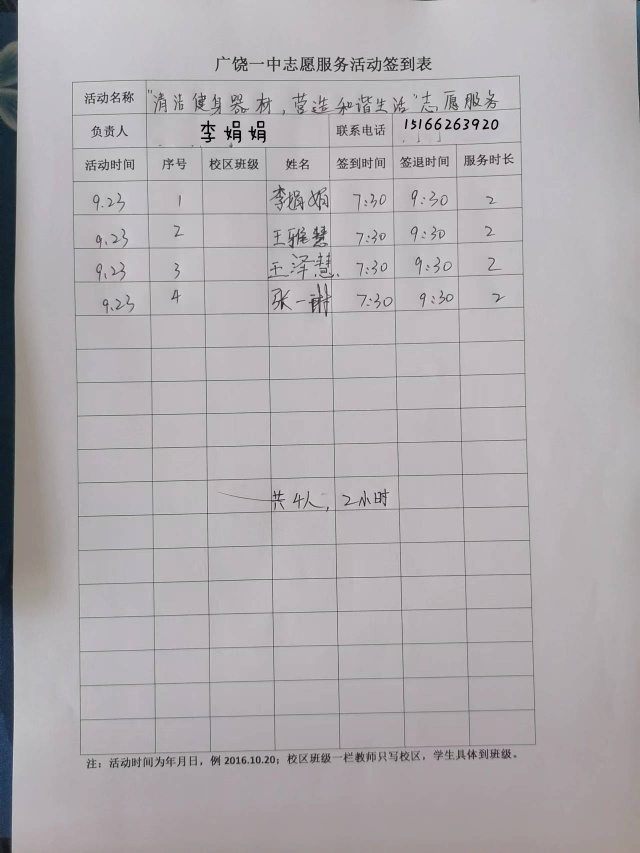 广饶一中志愿服务活动签到表
活动名称 "清洁健身器材，营造和谐生活"志愿服务
负责人 李娟娟 联系电话 15166263920
活动时间 序号 校区班级 姓名 签到时间 签退时间 服务时长
9.23 1 李娟娟 7:30 9:30 2
9.23 2 王雅慧 7:30 9:30 2
9.23 3 王泽慧 7:30 9:30 2
9.23 4 张一谢 7:30 9:30 2
共4人，2小时
注：活动时间为年月日，例 2016.10.20；校区班级一栏教师只写校区，学生具体到班级。